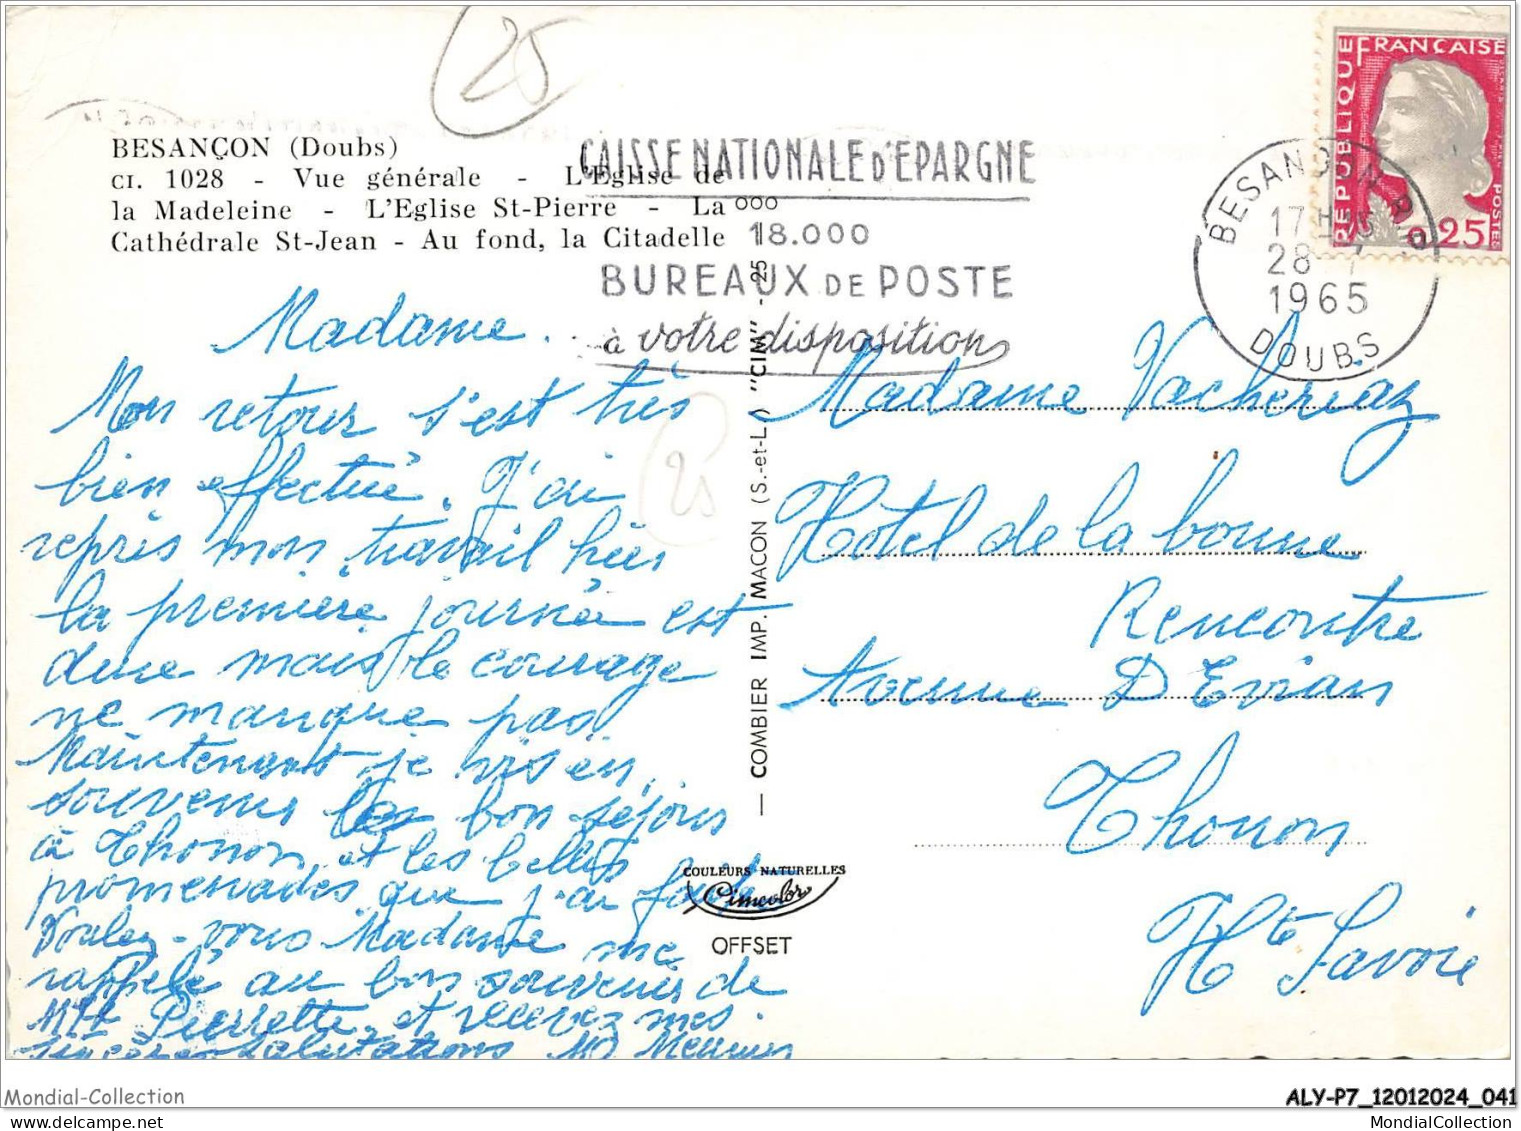 25
BESANÇON (Doubs)
CI. 1028 - Vue générale - L'Eglise de
la Madeleine - L'Eglise St-Pierre - La
Cathédrale St-Jean - Au fond, la Citadelle
CAISSE NATIONALE D'EPARGNE
18.000
BUREAUX DE POSTE
à votre disposition
REPUBLIQUE FRANÇAISE
POSTES
0,25
BESANÇON
17H
28-7
1965
DOUBS
Madame.
Mon retour s'est très
bien effectué. J'ai
repris mon travail hier
la première journée est
dure mais le courage
ne manque pas
Maintenant je vis en
souvenir les bon séjour
à Thonon, et les belles
promenades que j'ai fait
Voulez-vous Madame me
rappelé au bon souvenir de
Mlle Pierrette, et recevez mes
sincères salutations
25
— COMBIER IMP. MACON (S.-et-L.) "CIM" - 25
COULEURS NATURELLES
Cimcolor
OFFSET
Madame Vacheriaz
Hotel de la bonne
Rencontre
Avenue D Evian
Thonon
Hte Savoie
Mondial-Collection
ALY-P7_12012024_041
Mondial-Collection.com
MondialCollection.com